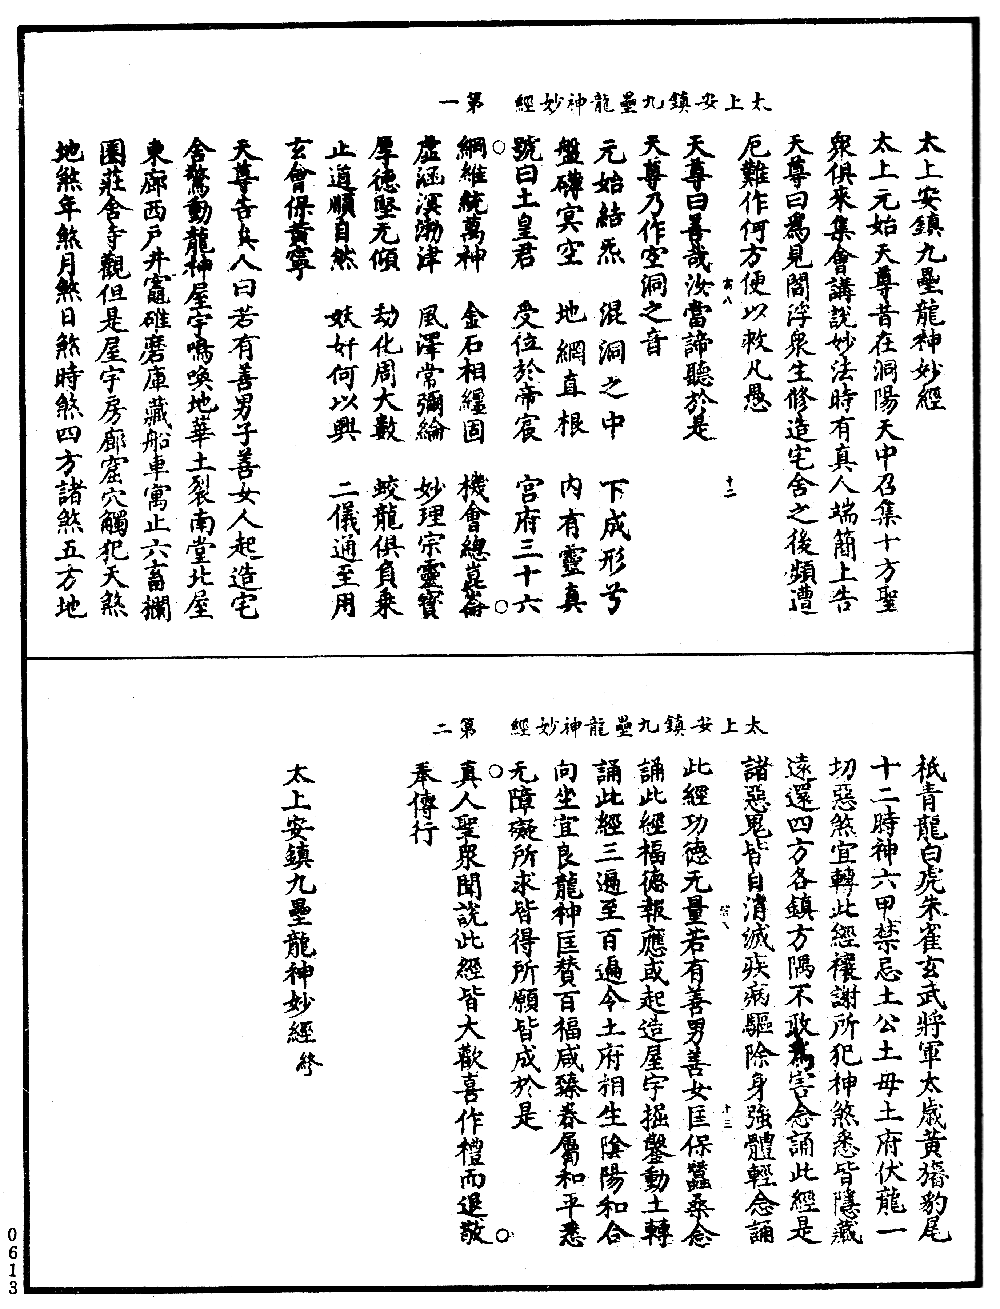 太上安鎮九壘龍神妙經　第一
太上安鎮九壘龍神妙經
太上元始天尊昔在洞陽天中召集十方聖
眾俱來集會講說妙法時有真人端簡上告
天尊曰爲見閻浮衆生修造宅舍之後頻遭
厄難作何方便以救凡愚
天尊曰善哉汝當諦聽於是
天尊乃作空洞之音
元始結炁　混洞之中　下成形兮
盤礴冥空　地網直根　内有靈真
號曰土皇君　受位於帝宸　宮府三十六
綱維統萬神　金石相纏固　機會總崑崙
虛涵溟渤津　風澤常彌綸　妙理宗靈寶
厚德堅无傾　劫化周大數　蛟龍俱負乘
止道順自然　妖奸何以興　二儀通至用
玄會保黃寧
天尊告真人曰若有善男子善女人起造宅
舍驚動龍神屋宇鳴喚地華土裂南堂北屋
東廊西戶井竈碓磨庫藏船車寓止六畜欄
圈莊舍寺觀但是屋宇房廊窟穴觸犯天煞
地煞年煞月煞日煞時煞四方諸煞五方地
太上安鎮九壘龍神妙經　第二
祇青龍白虎朱雀玄武將軍太歲黃旛豹尾
十二時神六甲禁忌土公土母土府伏龍一
切惡煞宜轉此經禳謝所犯神煞悉皆隱藏
遠還四方各鎮方隅不敢爲害念誦此經是
諸惡鬼皆自消滅疾病驅除身強體輕念誦
此經功德无量若有善男善女匡保蠶桑念
誦此經福德報應或起造屋宇掘鑿動土轉
誦此經三遍至百遍令土府相生陰陽和合
向坐宜良龍神匡贊百福咸臻眷屬和平悉
无障礙所求皆得所願皆成於是
真人聖眾聞說此經皆大歡喜作禮而退敬
奉傳行
太上安鎮九壘龍神妙經終
0613